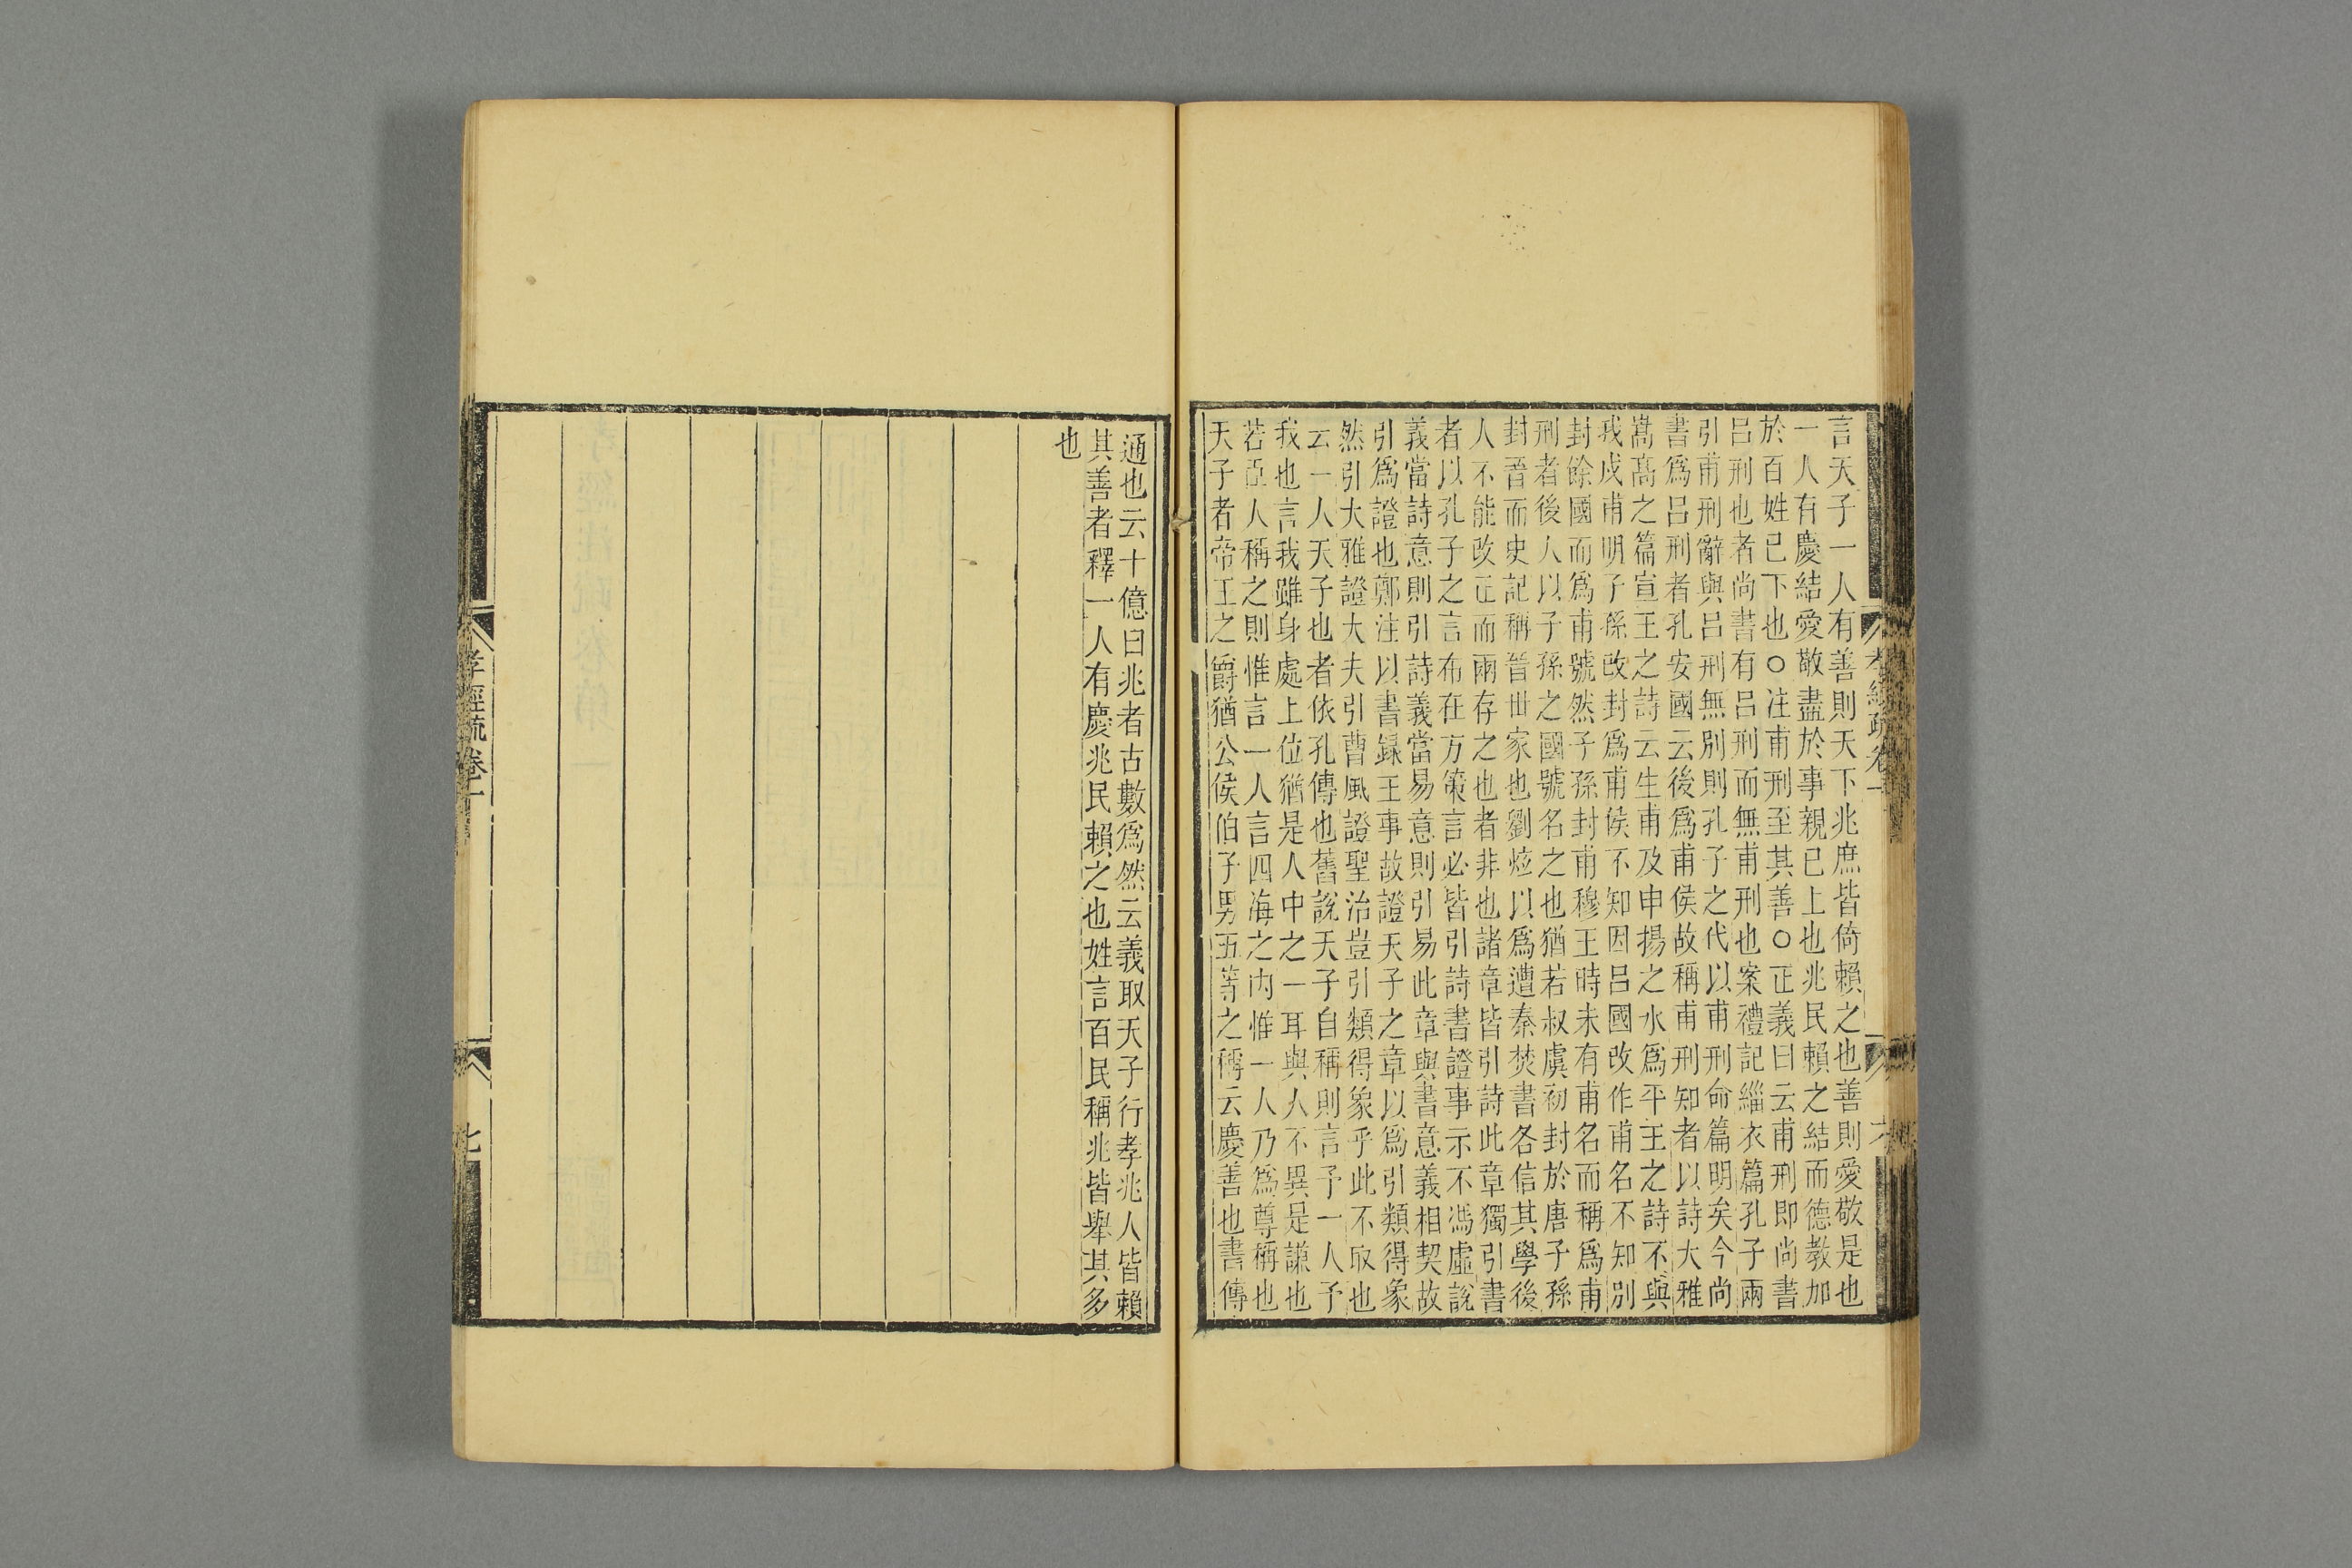 言天子一人有善則天下兆庶皆倚賴之也善則愛敬是也
一人有慶結愛敬盡於事親已上也兆民賴之結而德教加
於百姓已下也○注甫刑至其善○正義曰云甫刑即尚書
呂刑也者尚書有呂刑而無甫刑也案禮記緇衣篇孔子兩
引甫刑辭與呂刑無別則孔子之代以甫刑命篇明矣今尚
書爲呂刑者孔安國云後爲甫侯故稱甫刑知者以詩大雅
嵩高之篇宣王之詩云生甫及申揚之水爲平王之詩不與
我戍甫明子孫改封爲甫侯不知因呂國改作甫名不知別
封餘國而爲甫號然子孫封甫穆王時未有甫名而稱爲甫
刑者後人以子孫之國號名之也猶若叔虞初封於唐子孫
封晉而史記稱晉世家也劉炫以爲遭秦焚書各信其學後
人不能改正而兩存之也者非也諸章皆引詩此章獨引書
者以孔子之言布在方策言必皆引詩書證事示不馮虛說
義當詩意則引詩義當易意則引易此章與書意義相契故
引爲證也鄭注以書錄王事故證天子之章以爲引類得象
然引大雅證大夫引曹風證聖治豈引類得象乎此不取也
云一人天子也者依孔傳也舊說天子自稱則言予一人予
我也言我雖身處上位猶是人中之一耳與人不異是謙也
若臣人稱之則惟言一人言四海之內惟一人乃爲尊稱也
天子者帝王之爵猶公侯伯子男五等之稱云慶善也書傳
通也云十億曰兆者古數爲然云義取天子行孝兆人皆賴
其善者釋一人有慶兆民賴之也姓言百民稱兆皆舉其多
也
孝經疏卷一
七